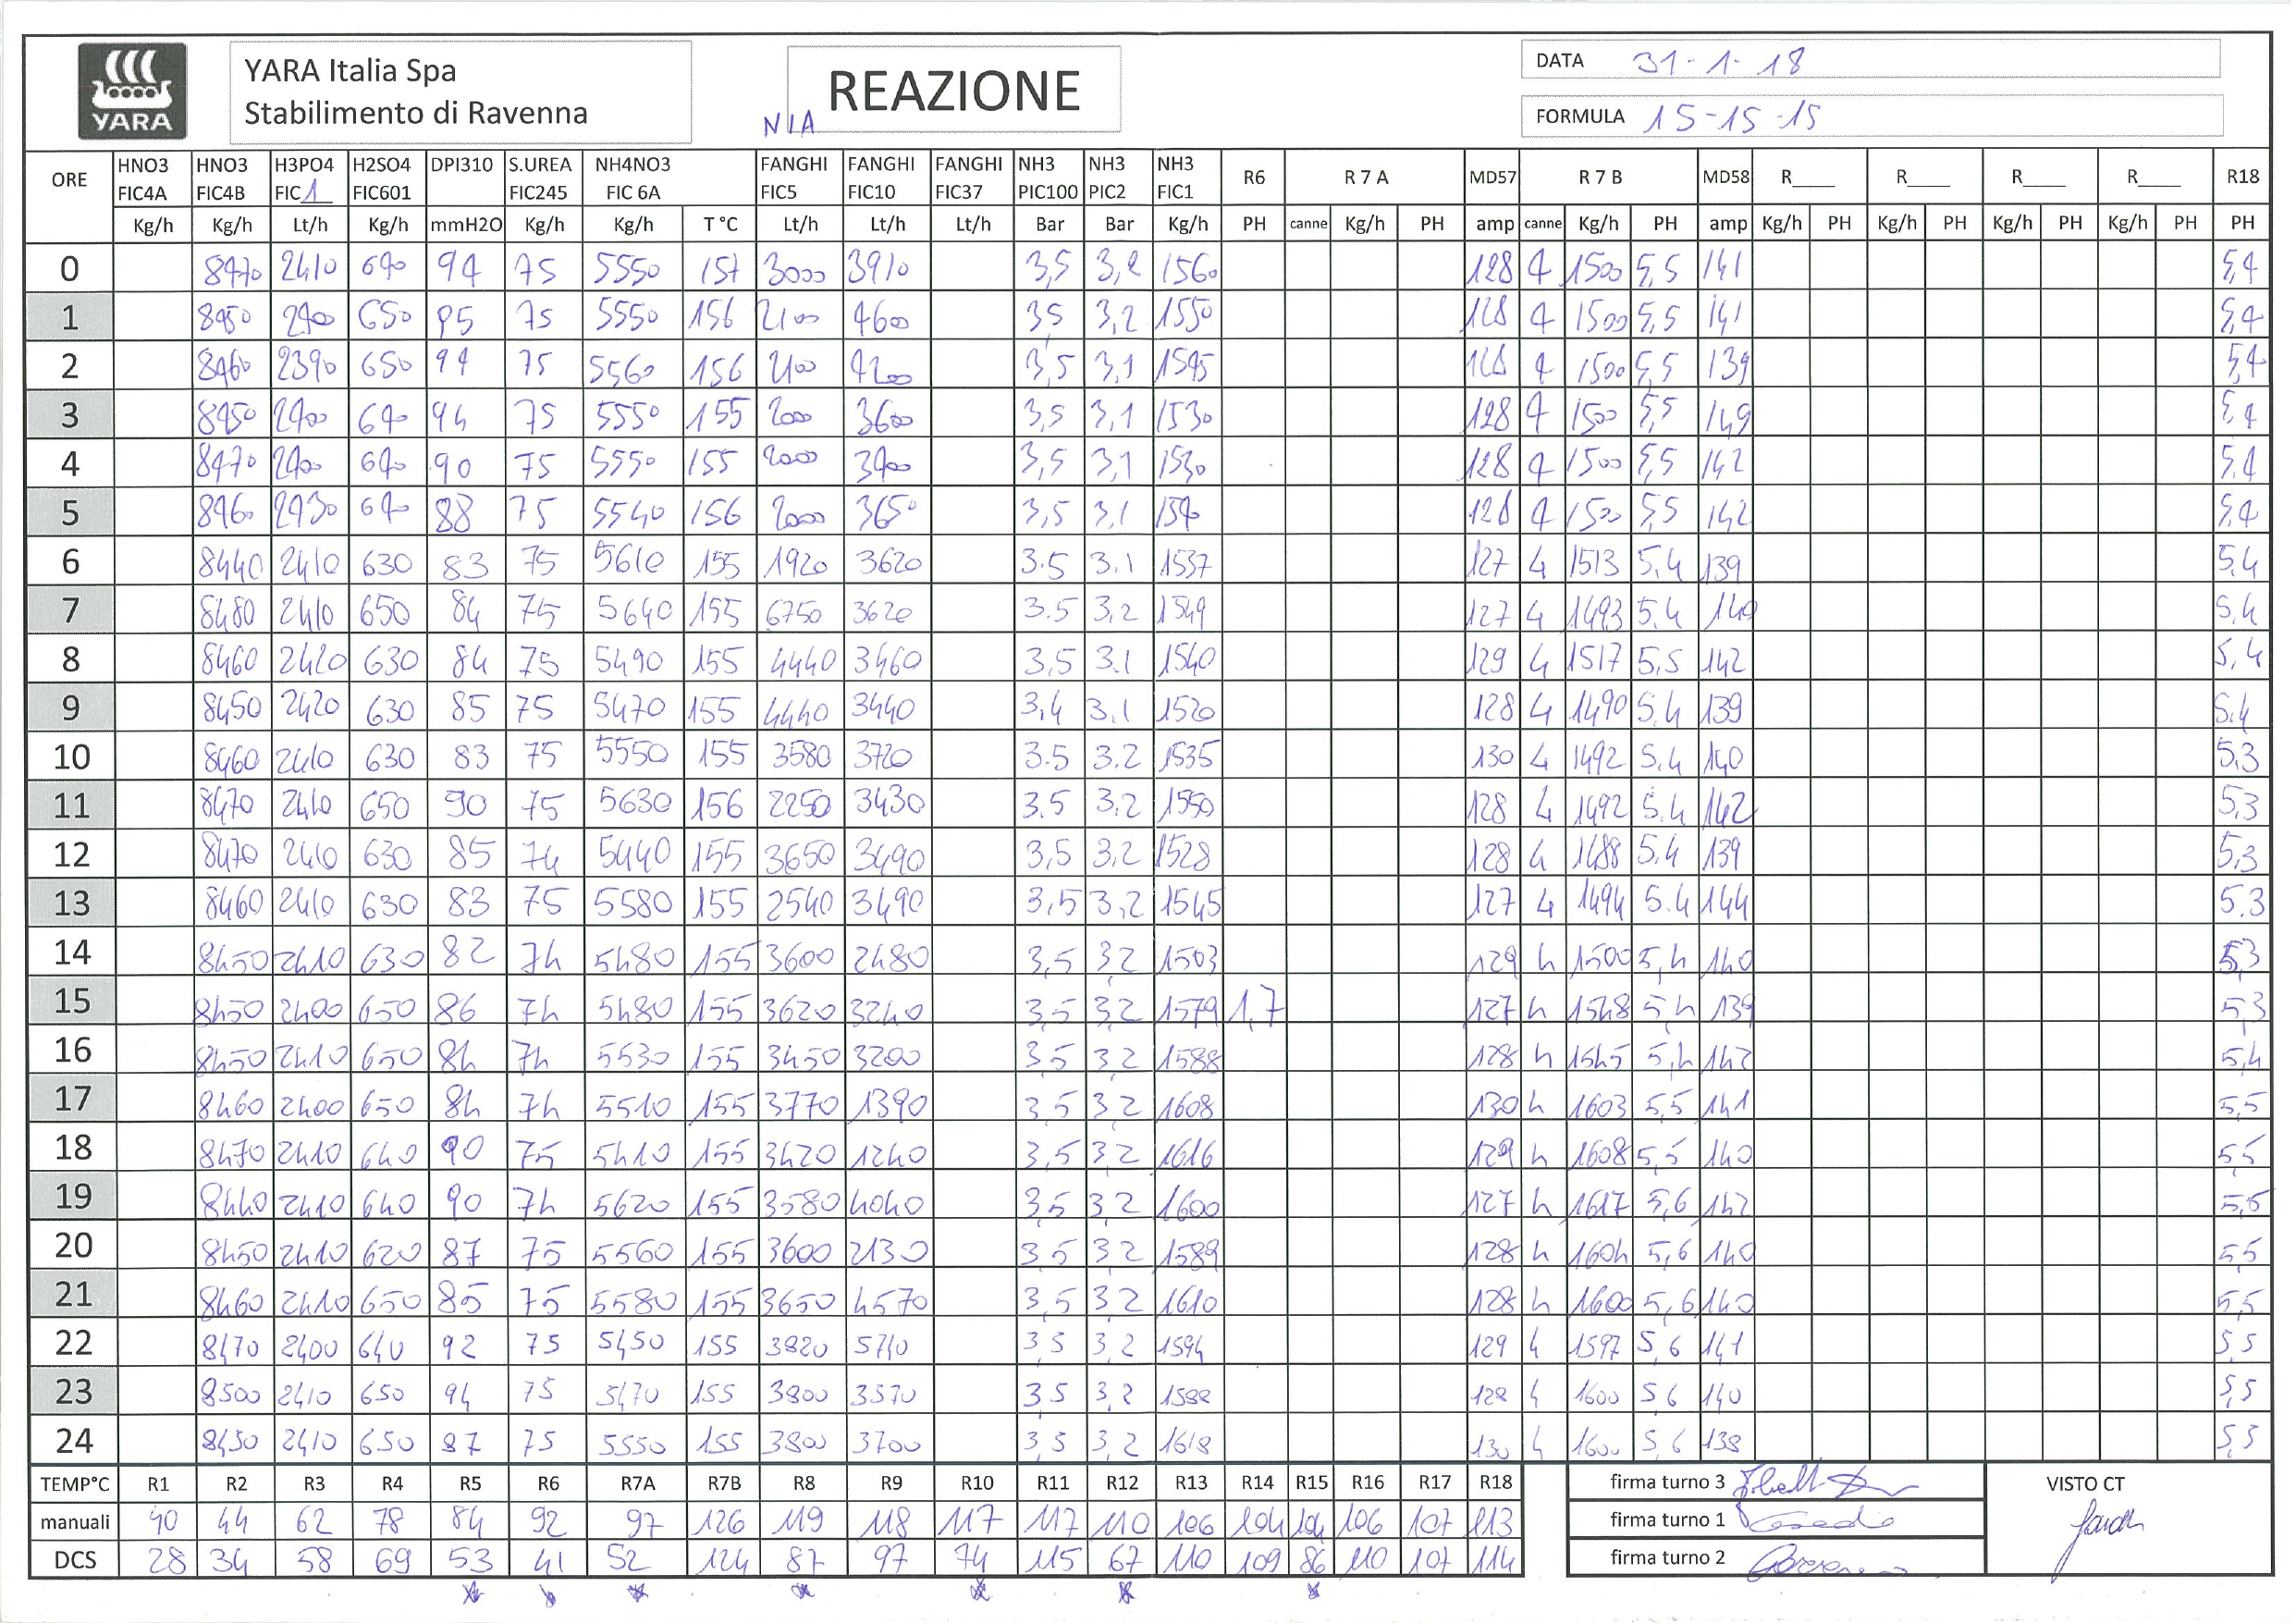 YARA
YARA Italia Spa
Stabilimento di Ravenna
NIA
REAZIONE
DATA 31-1-18
FORMULA 15-15-15
ORE HNO3 FIC4A HNO3 FIC4B H3PO4 FIC 1 H2SO4 FIC601 DPI310 S.UREA FIC245 NH4NO3 FIC 6A FANGHI FIC5 FANGHI FIC10 FANGHI FIC37 NH3 PIC100 NH3 PIC2 NH3 FIC1 R6 R 7 A MD57 R 7 B MD58 R____ R____ R____ R____ R18
Kg/h Kg/h Lt/h Kg/h mmH2O Kg/h Kg/h T °C Lt/h Lt/h Lt/h Bar Bar Kg/h PH canne Kg/h PH amp canne Kg/h PH amp Kg/h PH Kg/h PH Kg/h PH Kg/h PH PH
0 8470 2410 640 94 75 5550 157 3000 3910 3,5 3,2 1560 128 4 1500 5,5 141 5,4
1 8450 2400 650 95 75 5550 156 2100 4600 35 3,2 1550 128 4 1500 5,5 141 5,4
2 8460 2390 650 94 75 5560 156 2100 4200 3,5 3,1 1545 128 4 1500 5,5 139 5,4
3 8450 2400 640 94 75 5550 155 2000 3600 3,5 3,1 1530 128 4 1500 5,5 149 5,4
4 8470 2400 640 90 75 5550 155 2000 3400 3,5 3,1 1530 128 4 1500 5,5 142 5,4
5 8460 2430 640 88 75 5540 156 2000 3650 3,5 3,1 1540 128 4 1500 5,5 142 5,4
6 8440 2410 630 83 75 5610 155 1920 3620 3.5 3.1 1537 127 4 1513 5,4 139 5.4
7 8480 2410 650 84 75 5640 155 6750 3620 3.5 3,2 1549 127 4 1493 5.4 140 5.4
8 8460 2420 630 84 75 5490 155 4440 3460 3,5 3.1 1540 129 4 1517 5,5 142 5,4
9 8450 2420 630 85 75 5470 155 4440 3440 3,4 3.1 1520 128 4 1490 5.4 139 5.4
10 8460 2410 630 83 75 5550 155 3580 3720 3.5 3.2 1535 130 4 1492 5.4 140 5,3
11 8470 2410 650 90 75 5630 156 2250 3430 3.5 3,2 1550 128 4 1492 5.4 142 5,3
12 8470 2410 630 85 74 5440 155 3650 3490 3,5 3,2 1528 128 4 1488 5.4 139 5,3
13 8460 2410 630 83 75 5580 155 2540 3490 3,5 3,2 1545 127 4 1494 5.4 144 5.3
14 8450 2410 630 82 74 5480 155 3600 2480 3,5 3,2 1503 129 4 1500 5,4 140 5,3
15 8450 2400 650 86 74 5480 155 3620 3240 3,5 3,2 1579 1,7 127 4 1548 5,4 139 5,3
16 8450 2410 650 84 74 5530 155 3450 3200 3,5 3,2 1588 128 4 1545 5,4 142 5,4
17 8460 2400 650 84 74 5510 155 3770 1390 3,5 3,2 1608 130 4 1603 5,5 141 5,5
18 8470 2410 640 90 75 5410 155 3420 1240 3,5 3,2 1616 129 4 1608 5,5 140 5,5
19 8440 2410 640 90 74 5620 155 3580 4040 3,5 3,2 1600 127 4 1617 5,6 142 5,5
20 8450 2410 620 87 75 5560 155 3600 2130 3,5 3,2 1589 128 4 1604 5,6 140 5,5
21 8460 2410 650 85 75 5580 155 3650 4570 3,5 3,2 1610 128 4 1600 5,6 140 5,5
22 8470 2400 640 92 75 5450 155 3820 5740 3,5 3,2 1594 129 4 1597 5,6 141 5,5
23 8500 2410 650 94 75 5470 155 3800 3570 3,5 3,2 1588 128 4 1600 5,6 140 5,5
24 8450 2410 650 87 75 5550 155 3800 3700 3,5 3,2 1618 130 4 1600 5,6 138 5,5
TEMP°C R1 R2 R3 R4 R5 R6 R7A R7B R8 R9 R10 R11 R12 R13 R14 R15 R16 R17 R18
manuali 40 44 62 78 84 92 97 126 119 118 117 117 110 106 104 104 106 107 113
DCS 28 34 58 69 53 41 52 124 87 97 74 115 67 110 109 86 110 107 114
firma turno 3
firma turno 1
firma turno 2
VISTO CT